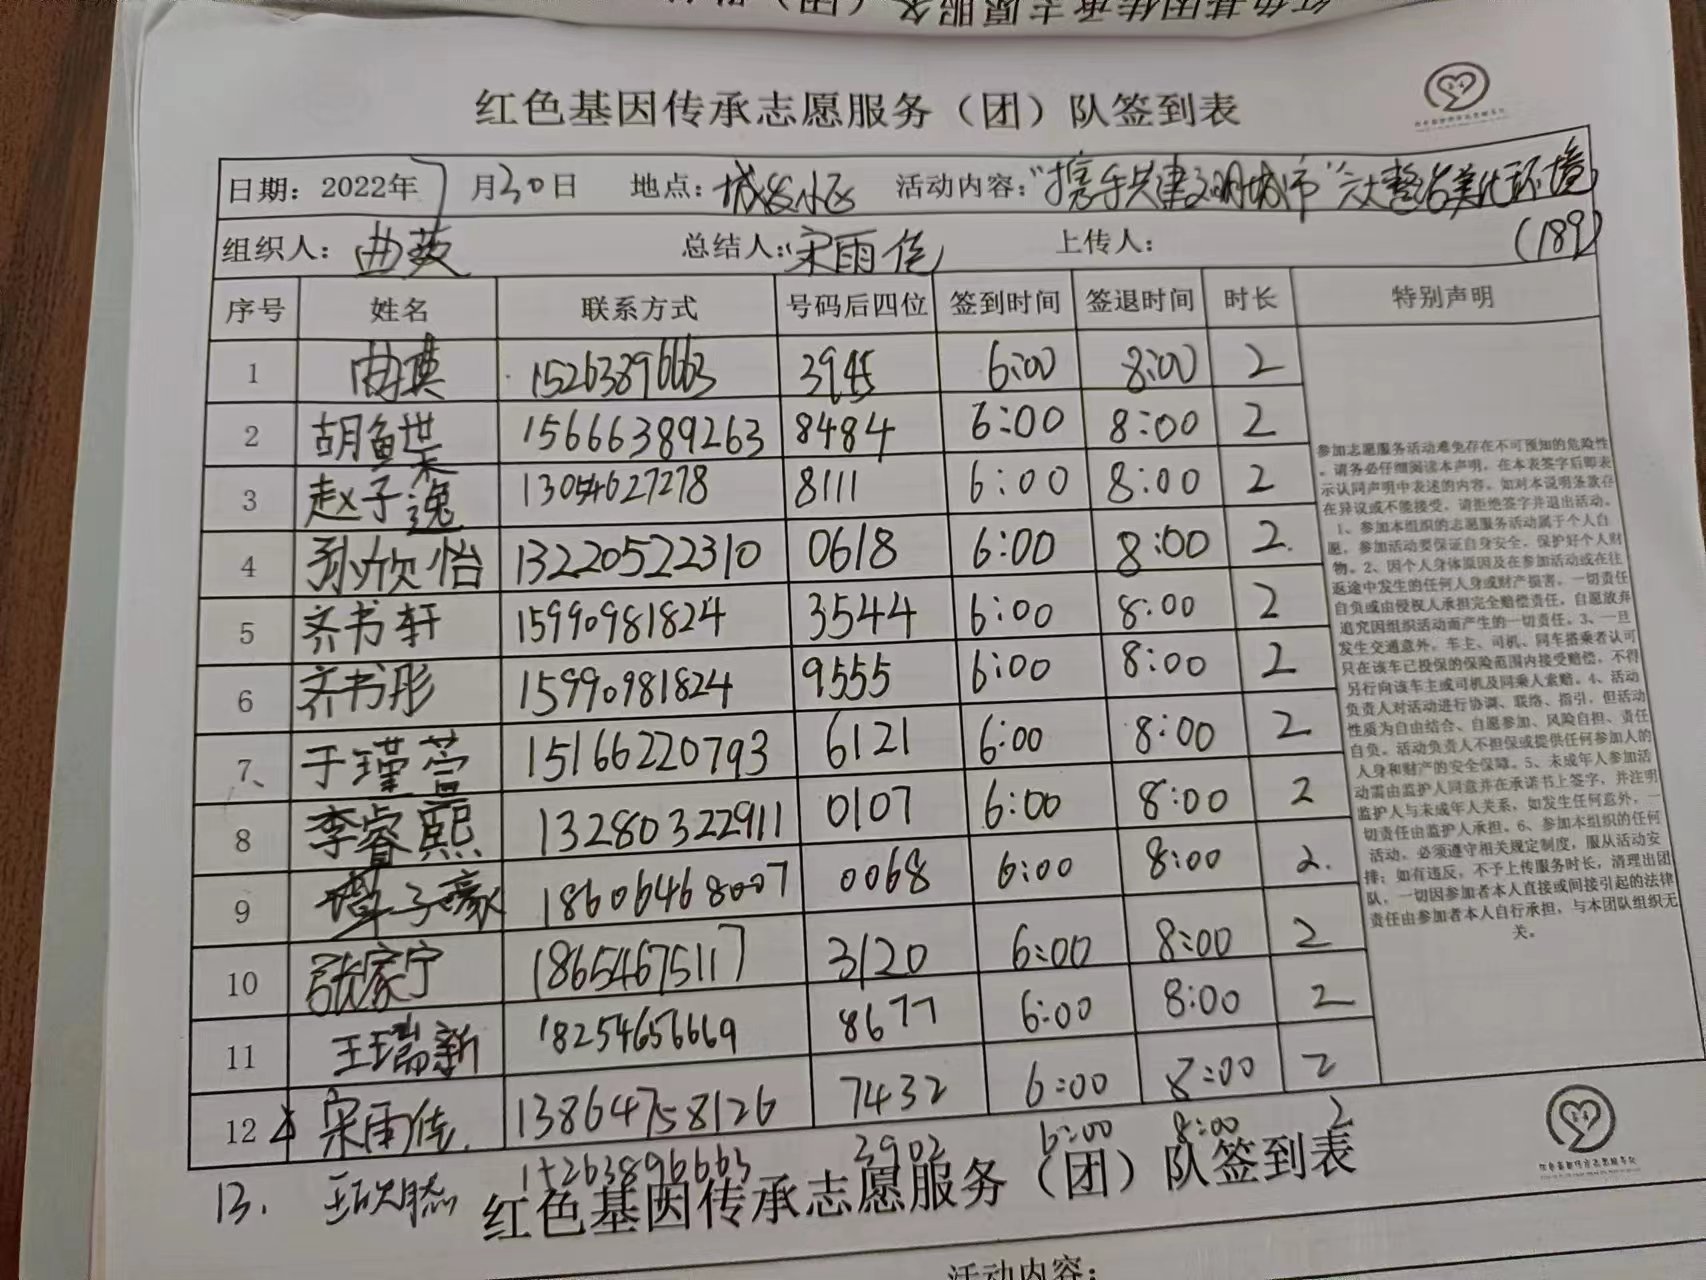 红色基因传承志愿服务（团）队
红色基因传承志愿服务（团）队签到表
日期：2022年7月30日 地点：城发小区 活动内容："携手共建文明城市"六大整治美化环境
组织人：曲 总结人：宋雨佳 上传人： (189)
序号 姓名 联系方式 号码后四位 签到时间 签退时间 时长 特别声明
1 曲 15263896663 3945 6:00 8:00 2
2 胡鱼世 15666389263 8484 6:00 8:00 2
3 赵子逸 13054627278 8111 6:00 8:00 2
4 孙欣怡 13220522310 0618 6:00 8:00 2.
5 齐书轩 15990981824 3544 6:00 8:00 2
6 齐书彤 15990981824 9555 6:00 8:00 2
7、 于瑾萱 15166220793 6121 6:00 8:00 2
8 李睿熙 13280322911 0107 6:00 8:00 2
9 子豪 18606468007 0068 6:00 8:00 2.
10 张家宁 18654675117 3120 6:00 8:00 2
11 王瑞新 18254656669 8677 6:00 8:00 2
12 宋雨佳. 13864758126 7432 6:00 8:00 2
13. 15263896663 3902 6:00 8:00 2
参加志愿服务活动难免存在不可预知的危险性
，请务必仔细阅读本声明，在本表签字后即表
示认同声明中表述的内容。如对本说明条款存
在异议或不能接受，请拒绝签字并退出活动。
1、参加本组织的志愿服务活动属于个人自
愿，参加活动要保证自身安全，保护好个人财
物。2、因个人身体原因及在参加活动或在往
返途中发生的任何人身或财产损害，一切责任
自负或由侵权人承担完全赔偿责任，自愿放弃
追究因组织活动而产生的一切责任。3、一旦
发生交通意外，车主、司机、同车搭乘者认可
只在该车已投保的保险范围内接受赔偿，不得
另行向该车主或司机及同乘人索赔。4、活动
负责人对活动进行协调、联络、指引，但活动
性质为自由结合、自愿参加、风险自担、责任
自负。活动负责人不担保或提供任何参加人的
人身和财产的安全保障。5、未成年人参加活
动需由监护人同意并在承诺书上签字，并注明
监护人与未成年人关系，如发生任何意外，一
切责任由监护人承担。6、参加本组织的任何
活动，必须遵守相关规定制度，服从活动安
排；如有违反，不予上传服务时长，清理出团
队，一切因参加者本人直接或间接引起的法律
责任由参加者本人自行承担，与本团队组织无
关。
红色基因传承志愿服务（团）队签到表
活动内容：